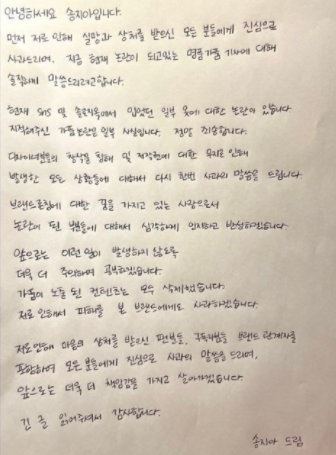 안녕하세요 송지아입니다.
먼저 저로 인해 실망과 상처를 받으신 모든 분들에게 진심으로
사과드리며, 지금 현재 논란이 되고있는 명품가품 기사에 대해
솔직하게 말씀드리려고합니다.
현재 SNS 및 솔로지옥에서 입었던 일부 옷에 대한 논란이 있습니다
지적해주신 가품논란은 일부 사실입니다. 정말 죄송합니다.
디자이너분들의 창작물 침해 및 저작권에 대한 무지로 인해
발생한 모든 상황들에 대해서 다시 한번 사과의 말씀을 드립니다
브랜드론칭에 대한 꿈을 가지고 있는 사람으로서
논란이 된 부분들에 대해서 심각하게 인지하고 반성하겠습니다.
앞으로는 이런일이 발생하지 않도록
더욱 더 주의하며 공부하겠습니다.
가품이 노출 된 컨텐츠는 모두 삭제했습니다.
저로 인해서 피해를 본 브랜드에게도 사과하겠습니다.
저로인해 마음의 상처를 받으신 팬분들, 구독자분들 브랜드 관계자를
포함하여 모든 분들에게 진심으로 사과의 말씀을 드리며,
앞으로는 더욱 더 책임감을 가지고 살아가겠습니다.
긴 글 읽어주셔서 감사합니다.
송지아 드림